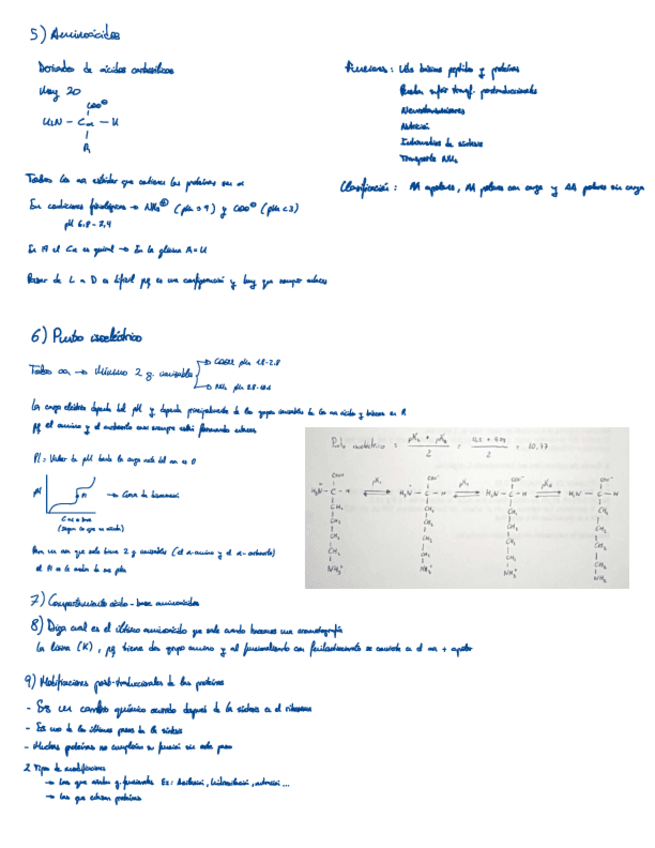 5) Aminoácidos
Derivados de ácidos carboxílicos
Hay 20
COO⊖
H₂N – Cα – H
R
Funciones: Uds básicas péptidos y proteínas
Pueden sufrir transf. postraduccionales
Neurotransmisores
Nutrición
Intermedios de síntesis
Transporte NH₃
Todos los aa estándar que contienen las proteínas son α
En condiciones fisiológicas → NH₃⊕ (pKa = 9) y COO⊖ (pKa < 3)
pH 6.8 - 7.4
Clasificación: AA apolares, AA polares con carga y AA polares sin carga
En A el Cα es quiral → En la glicina R = H
Pasar de L a D es difícil pq es una configuración y hay que romper enlaces
6) Punto isoeléctrico
Todos aa → Mínimo 2 g. ionizables
→ COOH pKa 1.8-2.8
→ NH₂ pKa 8.8-10.6
La carga eléctrica depende del pH y depende principalmente de los grupos ionizables de los aa ácidos y básicos en R
pq el amino y el carboxilo casi siempre están formando enlaces
PI = Valor de pH donde la carga neta del aa es 0
pH
PI
→ Curva de
C ac o base
(Según lo que se añada)
Para un aa que solo tiene 2 g ionizables (el α-amino y el α-carboxilo)
el PI es la media de sus pKa
Punto isoeléctrico = = = 10,77
2 2
pK₁ pK₂
COO⁻ COO⁻ COO⁻ COO⁻
H₃N – C – H H₃N – C – H H₂N – C – H H₂N – C – H
CH₂ CH₂ CH₂ CH₂
CH₂ CH₂ CH₂ CH₂
CH₂ CH₂ CH₂ CH₂
CH₂ CH₂ CH₂ CH₂
NH₃⁺ NH₃⁺ NH₃⁺ NH₂
7) Comportamiento ácido-base aminoácidos
8) Diga cual es el último aminoácido que sale cuando hacemos una cromatografía
La lisina (K), pq tiene dos grupo amino y al funcionalizarlo con se convierte en el aa + apolar
9) Modificaciones post-traduccionales de las proteínas
- Es un cambio químico ocurrido después de la síntesis en el ribosoma
- Es uno de los últimos pasos de la síntesis
- Muchas proteínas no cumplirían su función sin este paso
2 Tipos de modificaciones
→ Las que añaden g. funcionales Ex: Acetilación, hidroxilación, ...
→ Las que proteínas